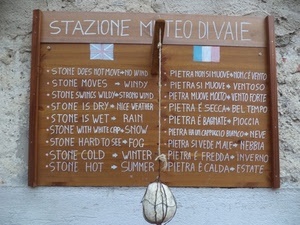 STAZIONE METEO DI VAIE
• STONE DOES NOT MOVE → NO WIND
• STONE MOVES → WINDY
• STONE SWINGS WILDLY → STRONG WIND
• STONE IS DRY → NICE WEATHER
• STONE IS WET → RAIN
• STONE WITH WHITE CAP → SNOW
• STONE HARD TO SEE → FOG
• STONE COLD → WINTER
• STONE HOT → SUMMER
PIETRA NON SI MUOVE → NON C'È VENTO
PIETRA SI MUOVE → VENTOSO
PIETRA MUOVE MOLTO → VENTO FORTE
PIETRA È SECCA → BEL TEMPO
PIETRA È BAGNATE → PIOGGIA
PIETRA HA UN CAPPUCCIO BIANCO → NEVE
PIETRA SI VEDE MALE → NEBBIA
PIETRA È FREDDA → INVERNO
PIETRA È CALDA → ESTATE